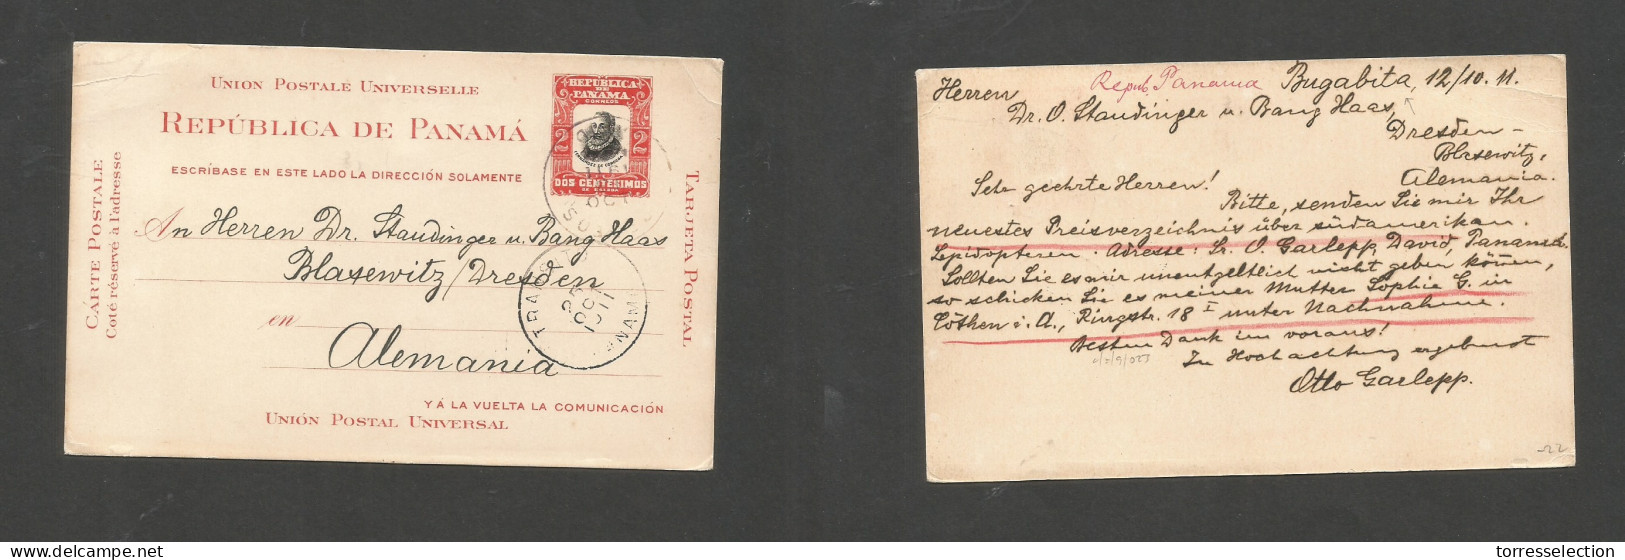 UNION POSTALE UNIVERSELLE
REPÚBLICA DE PANAMÁ
ESCRÍBASE EN ESTE LADO LA DIRECCIÓN SOLAMENTE
REPÚBLICA
DE
PANAMA
CORREOS
2 2
DOS CENTESIMOS
DE BALBOA
CARTE POSTALE
Coté réservé à l'adresse
TARJETA POSTAL
An Herren Dr. Staudinger u. Bang Haas
Blasewitz/Dresden
en
Alemania
TRANSITO
25
OCT
1911
PANAMA
Y Á LA VUELTA LA COMUNICACIÓN
UNIÓN POSTAL UNIVERSAL
Repub. Panama Bugabita, 12/10. 11.
Herren
Dr. O. Staudinger u. Bang Haas,
Dresden-
Blasewitz,
Alemania.
Sehr geehrte Herren!
Bitte, senden Sie mir Ihr
neuestes Preisverzeichnis über südamerikan.
Lepidopteren. Adresse: Sr. O. Garlepp, David, Panamá.
Sollten Sie es mir unentgeltlich nicht geben können,
so schicken Sie es meiner Mutter Sophie G. in
Cöthen i. A., Ringstr. 18 I unter Nachnahme.
Besten Dank im voraus!
In Hochachtung ergebenst
Otto Garlepp.
torresselection